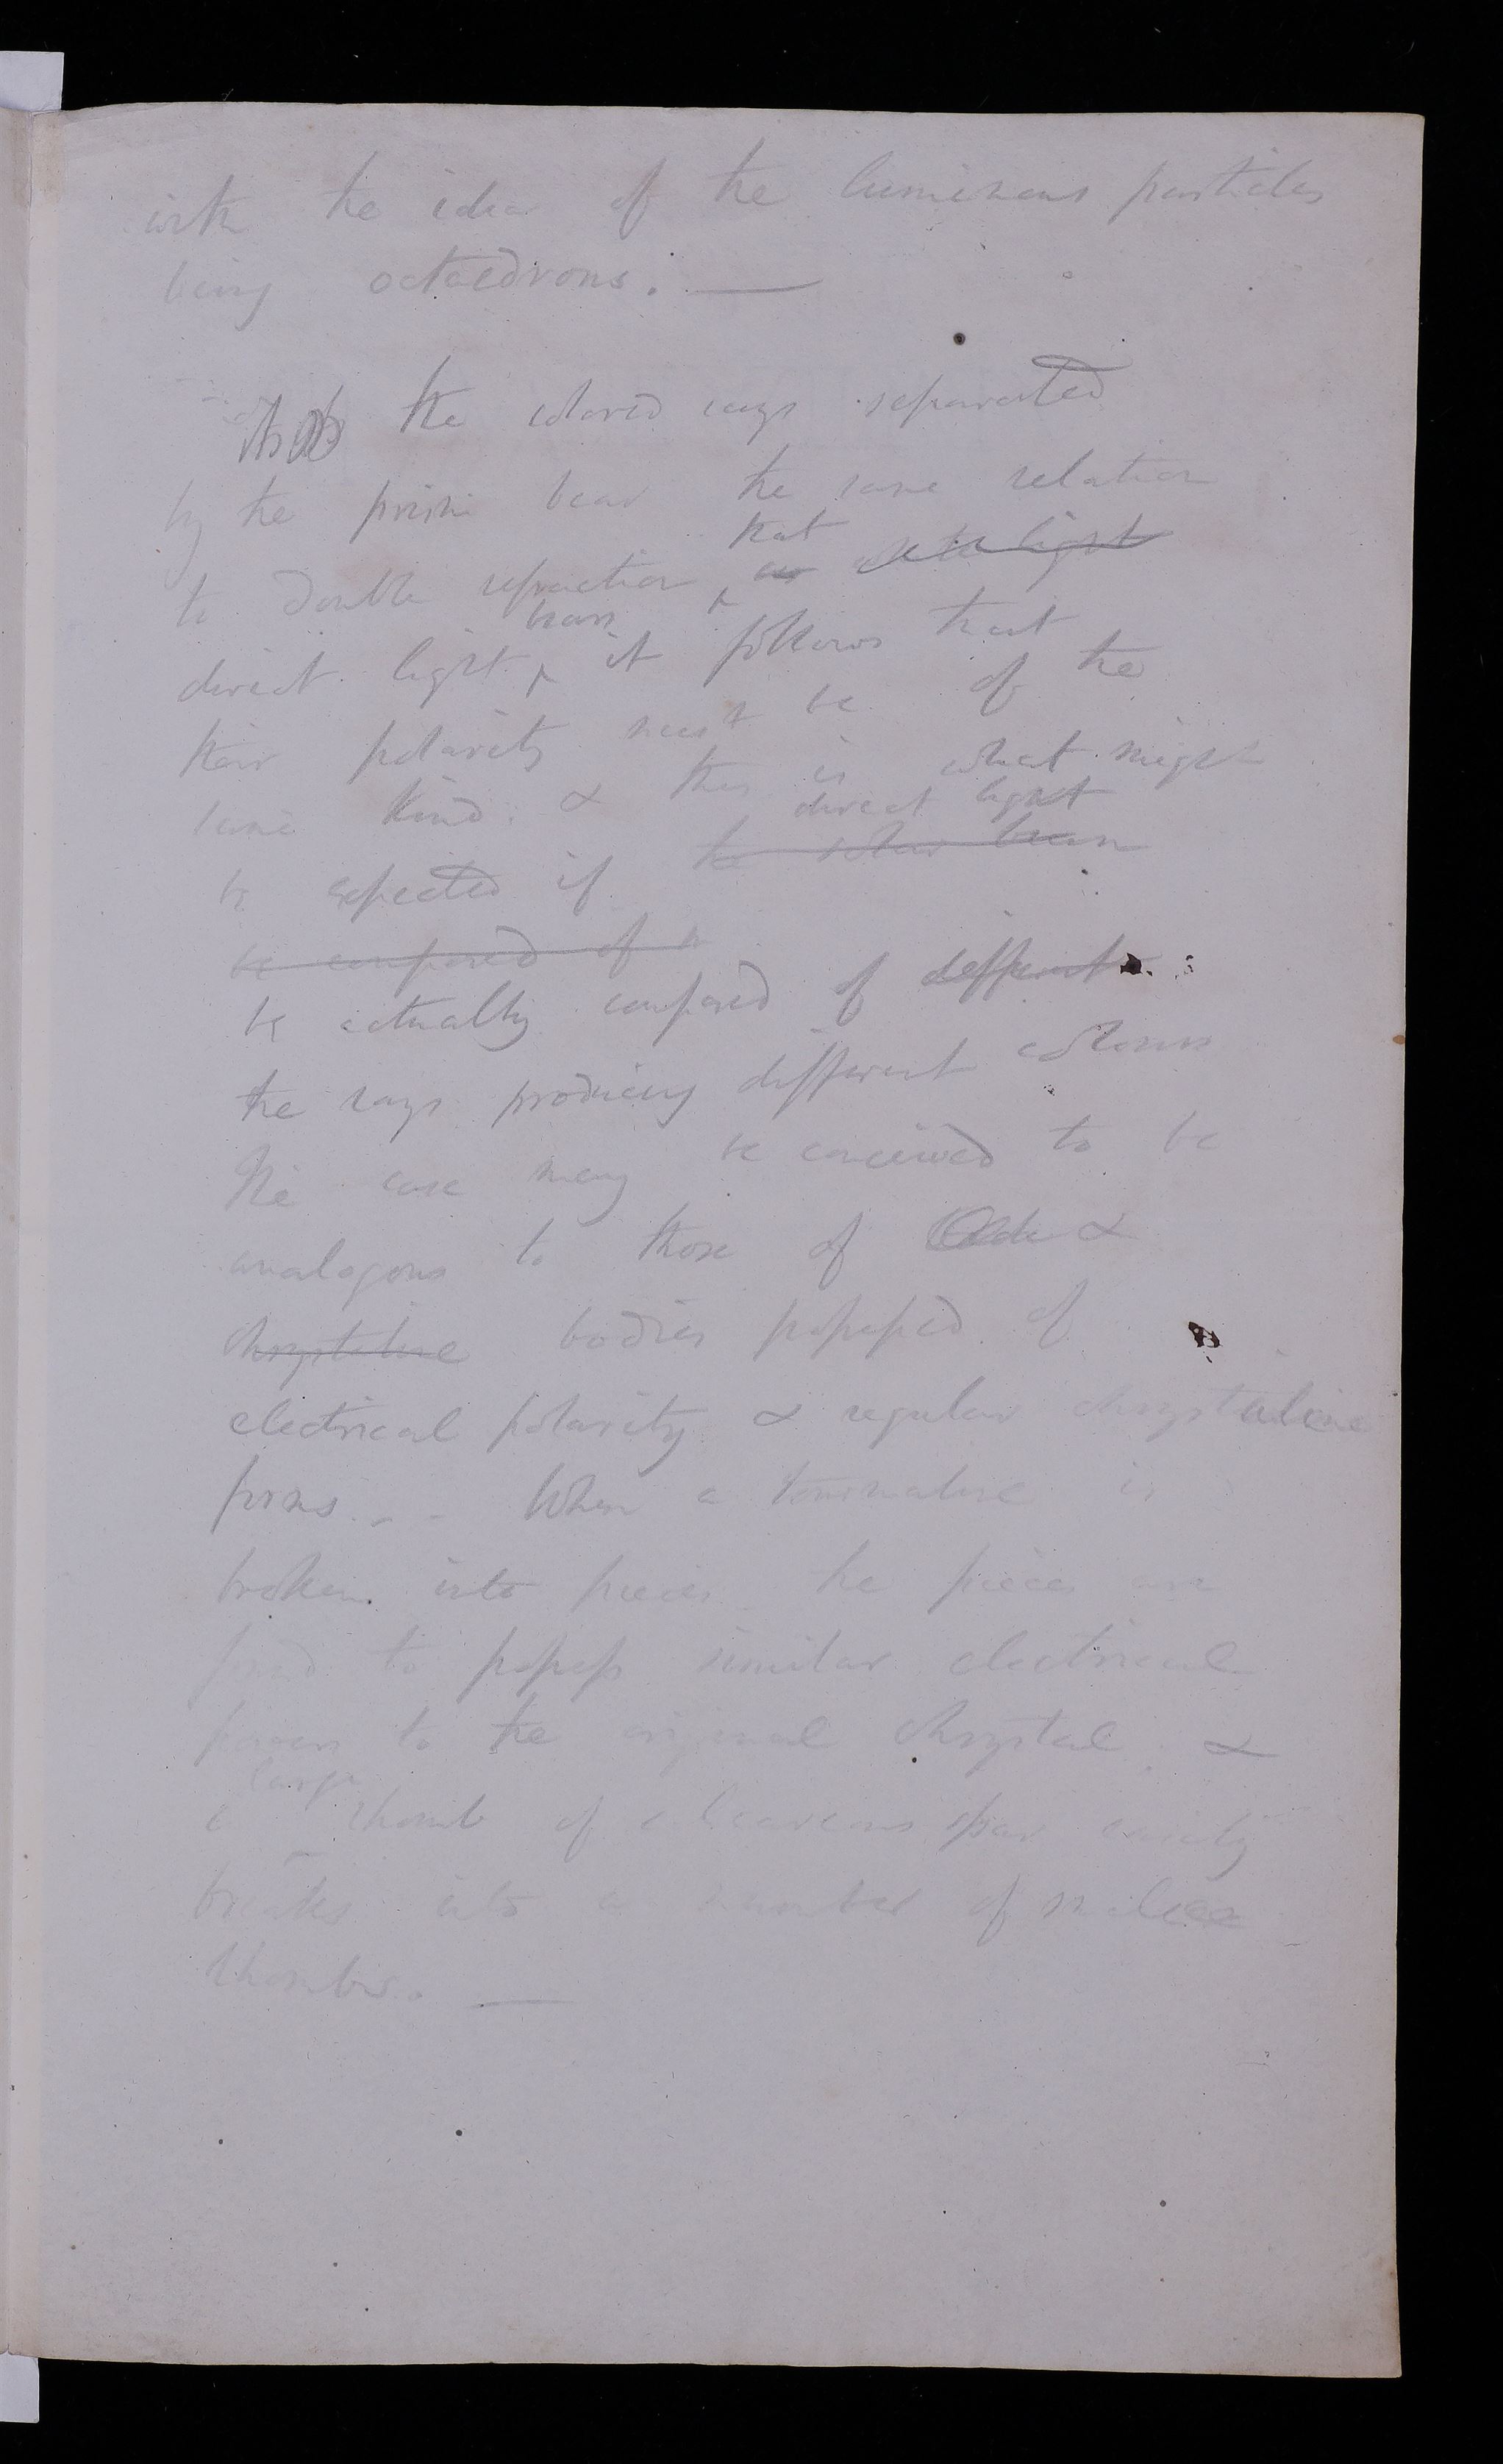 with the idea of the luminous particles
being octaedrons. —
As the colored rays separated
by the prism bear the same relation
that
to double refraction as white light
bears
direct light, it follows that
their polarity must be of the
same kind. & this is what might
direct light
be expected if the solar beam
be composed of a
be actually composed of different
the rays producing different colours
The case may be conceived to be
analogous to those of &
chrystaline bodies possessed of
electrical polarity & regular chrystaline
forms. - - When a tourmaline is
broken into pieces the pieces are
found to possess similar electrical
powers to the original chrystal &
large
a rhomb of calcareous spar easily
breaks into a number of smaller
rhombs. —